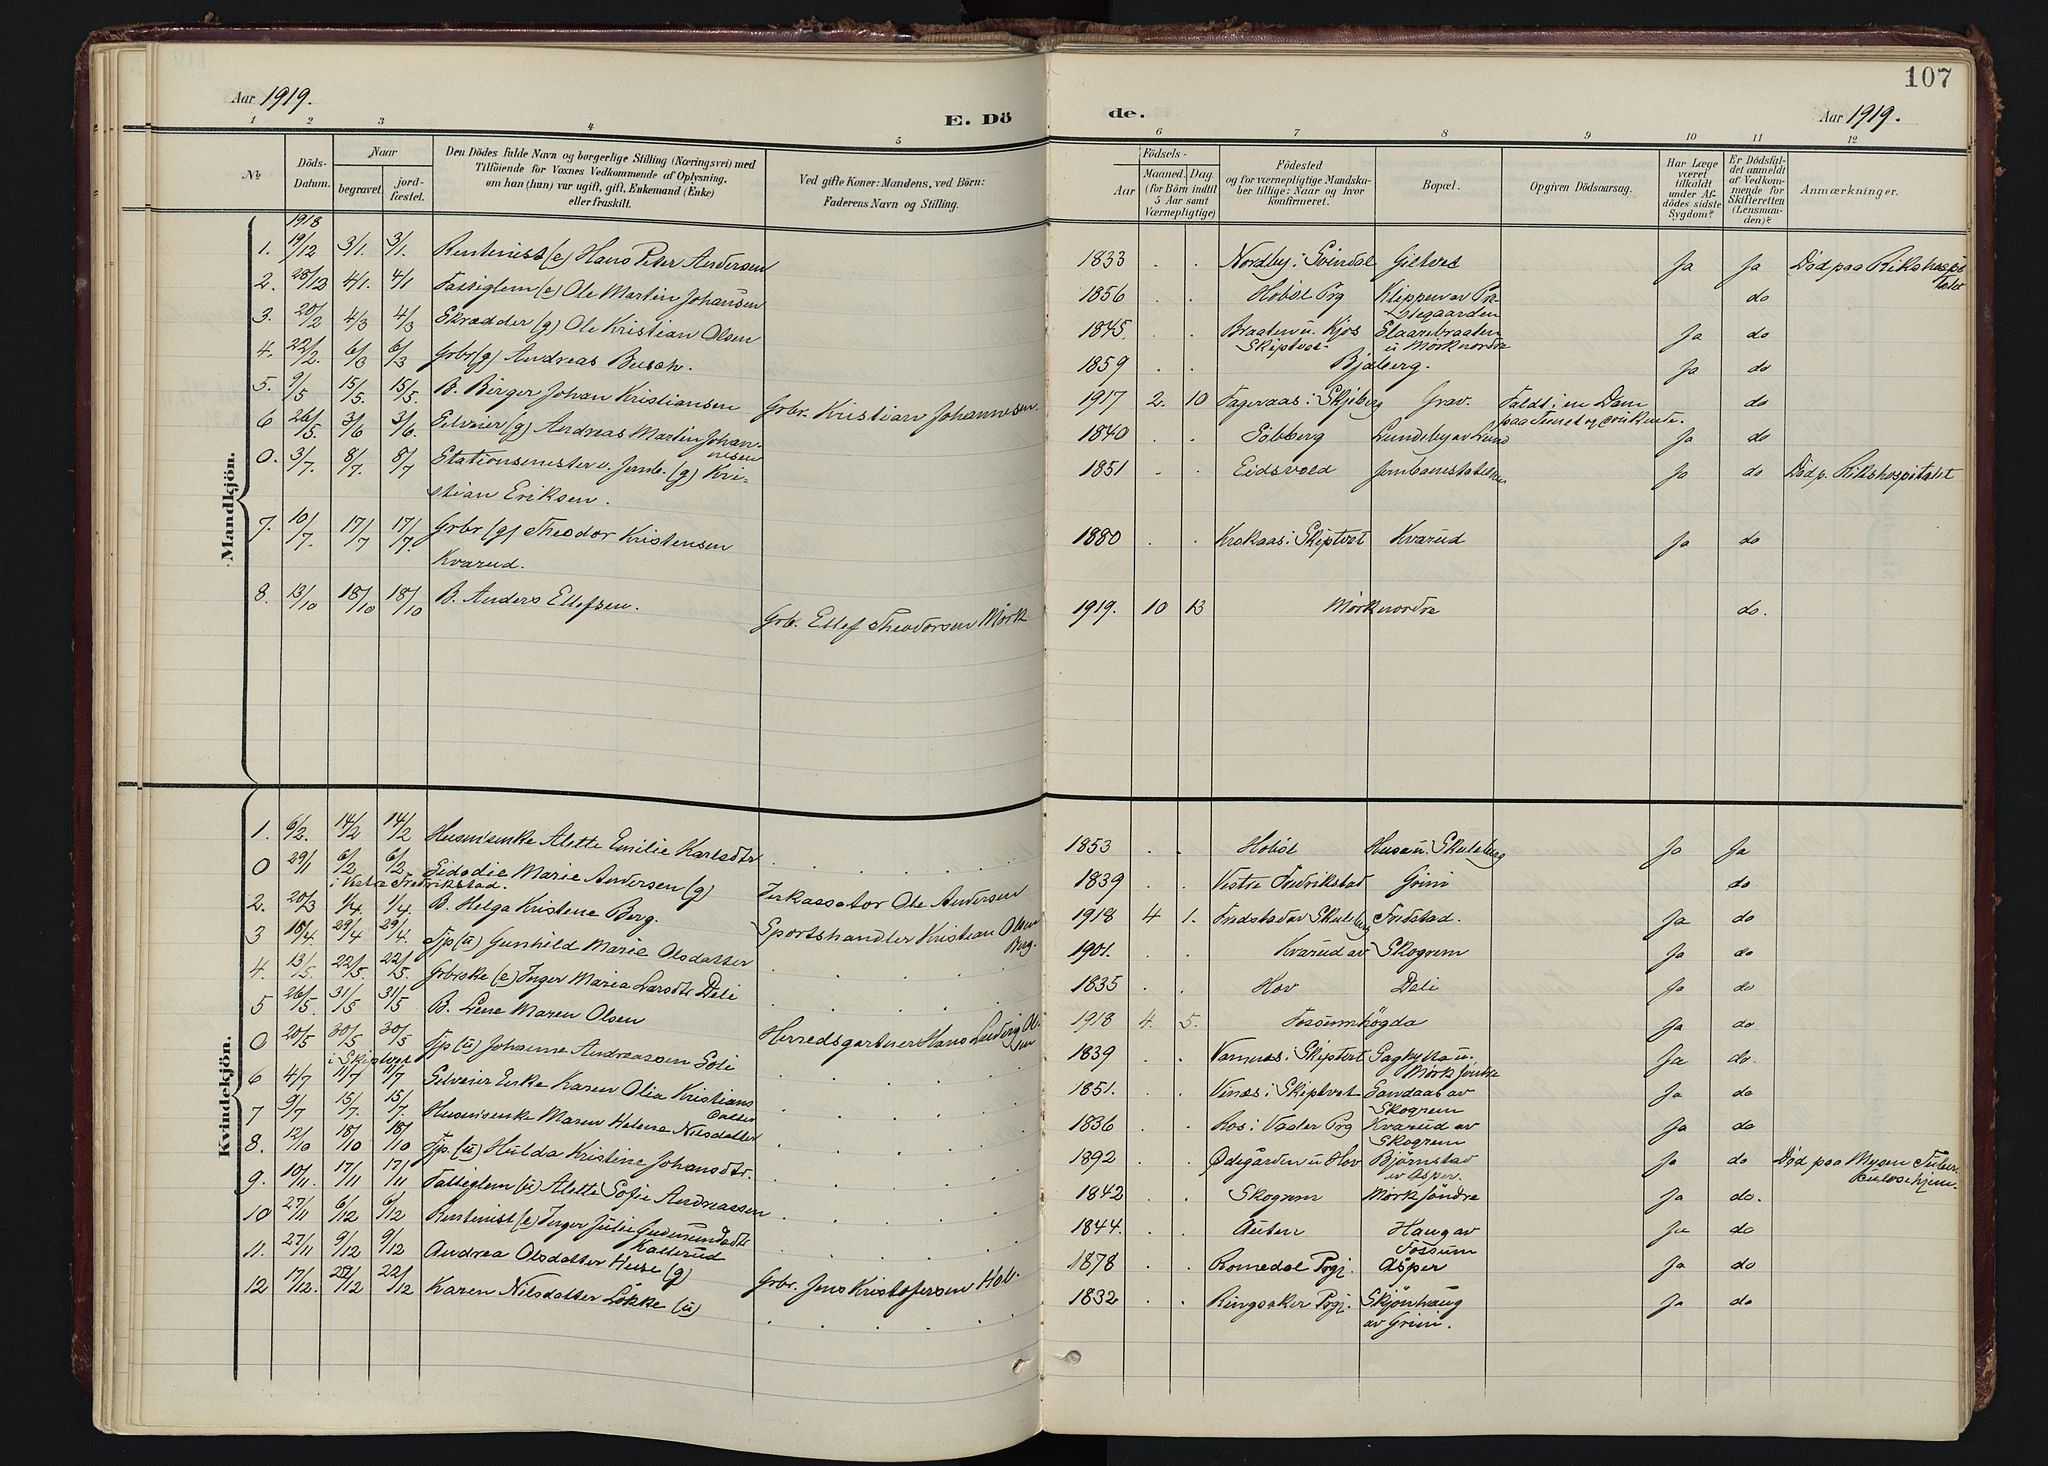 107
Aar 1919.
E. Dö
de.
Aar 1919.
1 2 3 4 5 6 7 8 9 10 11 12
No.
Döds-Datum.
Naar
begravet.
jord-fæstet.
Den Dödes fulde Navn og borgerlige Stilling (Næringsvei) med
Tilföiende for Voxnes Vedkommende af Oplysning,
om han (hun) var ugift, gift, Enkemand (Enke)
eller fraskilt.
Ved gifte Koner: Mandens, ved Börn:
Faderens Navn og Stilling.
Födsels-
Aar
Maaned. Dag.
(for Börn indtil
5 Aar samt
Værnepligtige)
Födested
og for værnepligtige Mandska-
ber tillige: Naar og hvor
konfirmeret.
Bopæl.
Opgiven Dödsaarsag.
Har Læge
været
tilkaldt
under Af-
dödes sidste
Sygdom?
Er Dödsfal-
det anmeldt
af Vedkom-
mende for
Skifteretten
(Lensman-
den)?
Anmærkninger.
Mandkjön.
1918
1. 19/12 3/1. 3/1. Rentenist (e) Hans Peter Andersen 1833 . . Nordby i Svindal Ja Ja Död paa Rikshospi-
talet
2. 28/12 4/1. 4/1 Fattiglem (e) Ole Martin Johansen 1856 . . Hobøl Prg Klippen av Pre-
stegaarden do
3. 20/2 4/3 4/3 Skrædder (g) Ole Kristian Olsen 1845. . . Braaten u. Kjos
Skiptvet Staaribraaten
u Mörknordre Ja do
4. 22/2. 6/3 6/3 Grbr (g) Andreas Busch. 1859 . . Bjaberg. Ja do
5. 9/5 15/5. 15/5. B. Birger Johan Kristiansen Grbr. Kristian Johannesen. 1917 2. 10 Fageraas i Skjeberg Grav. Faldt i en Dam
paa Tunet og druknete. do
6 26/5. 3/6 3/6. Selveier (g) Andreas Martin Johan-
nesen 1840 . . Solberg Lundeby av Lund Ja do
0. 3/7. 8/7. 8/7 Stationsmester v. Jernb. (g) Kri-
stian Eriksen. 1851 . . Eidsvold Jernbanestationen Ja do Död p. Rikshospitalet
7. 10/7. 17/7 17/7. Grbr (g) Theodor Kristensen
Kvarud. 1880 . . Krokaas i Skiptvet Kvarud Ja do
8. 13/10 18/10 18/10 B. Anders Ellefsen. Grb. Ellef Theodorsen Mörk 1919. 10 13 Mörk nordre do.
Kvindekjön.
1. 6/2. 14/2 14/2 Husmsenke Alette Emilie Karlsdtr . . . . . 1853 . . Hobøl Husa u. Skuleberg Ja Ja
0 29/1 6/2 6/2 Sidodie Marie Andersen (g)
i Vestre Fredrikstad. Inkassator Ole Andersen 1839 . . Vestre Fredrikstad Grini do
2. 20/3 1/4 1/4. B. Helga Kristene Berg. Sportshandler Kristian Olsen
Berg. 1918 4 1. Fredstad av Skuleberg Fredstad. Ja do
3 18/4. 29/4 29/4. Tjp (u) Gunhild Marie Olsdatter . . . . . 1901. . . Kvarud av Skogrem Ja do
4. 13/5. 22/5. 22/5. Grbrske (e) Inger Maria Larsdtr Deli . . . . . 1835 . . Hov Deli Ja do
5 26/5. 31/5 31/5 B. Lene Maren Olsen Herredsgartner Hans Ludvig Ol-
sen 1918 4. 5. Fossumhögda Ja do
0 20/5 30/5 30/5 Tjp (u) Johanne Andreassen Soli
i Skiptvet . . . . . 1839 . . Vamnes i Skiptvet Saghytta u.
Mörk söndre Ja do.
6 4/7 11/7 11/7 Selveier Enke Karen Olia Kristians
datter . . . . . 1851. . . Vinæs i Skiptvet Sandaas av
Skogrem Ja do
7 9/7 15/7. 15/7. Husmsenke Maren Helene Nilsdatter . . . . . 1836 . . Ros i Vaaler Prg Kvarud av
Skogrem Ja do
8. 12/10 18/10 18/10 Tjp. (u) Hulda Kristine Johansdtr. . . . . . 1892 . . Ødegården u Hov Björnstad
av Asper. Ja do Död paa Mysen Tuber-
kulosehjem.
9. 10/11. 17/11 17/11 Fattiglem (u) Alette Sofie Andreassen . . . . . 1842 . . Skogrem Mörk söndre Ja do.
10 27/11 6/12 6/12 Rentenist (e) Inger Julie Gudmundsdtr
Kallerud . . . . . 1844. . . Auten Haug av
Fossum Ja do
11. 27/11 9/12 9/12 Andrea Olsdatter Huse (g) Grbr. Jens Kristofersen Hov. 1878 . . Romedal Prgj. Asper Ja do
12 17/12. 22/12 22/12 Karen Nilsdatter Løkke (u) . . . . . 1832 . . Ringsaker Prgj. Skjönhaug
av Grini. Ja do